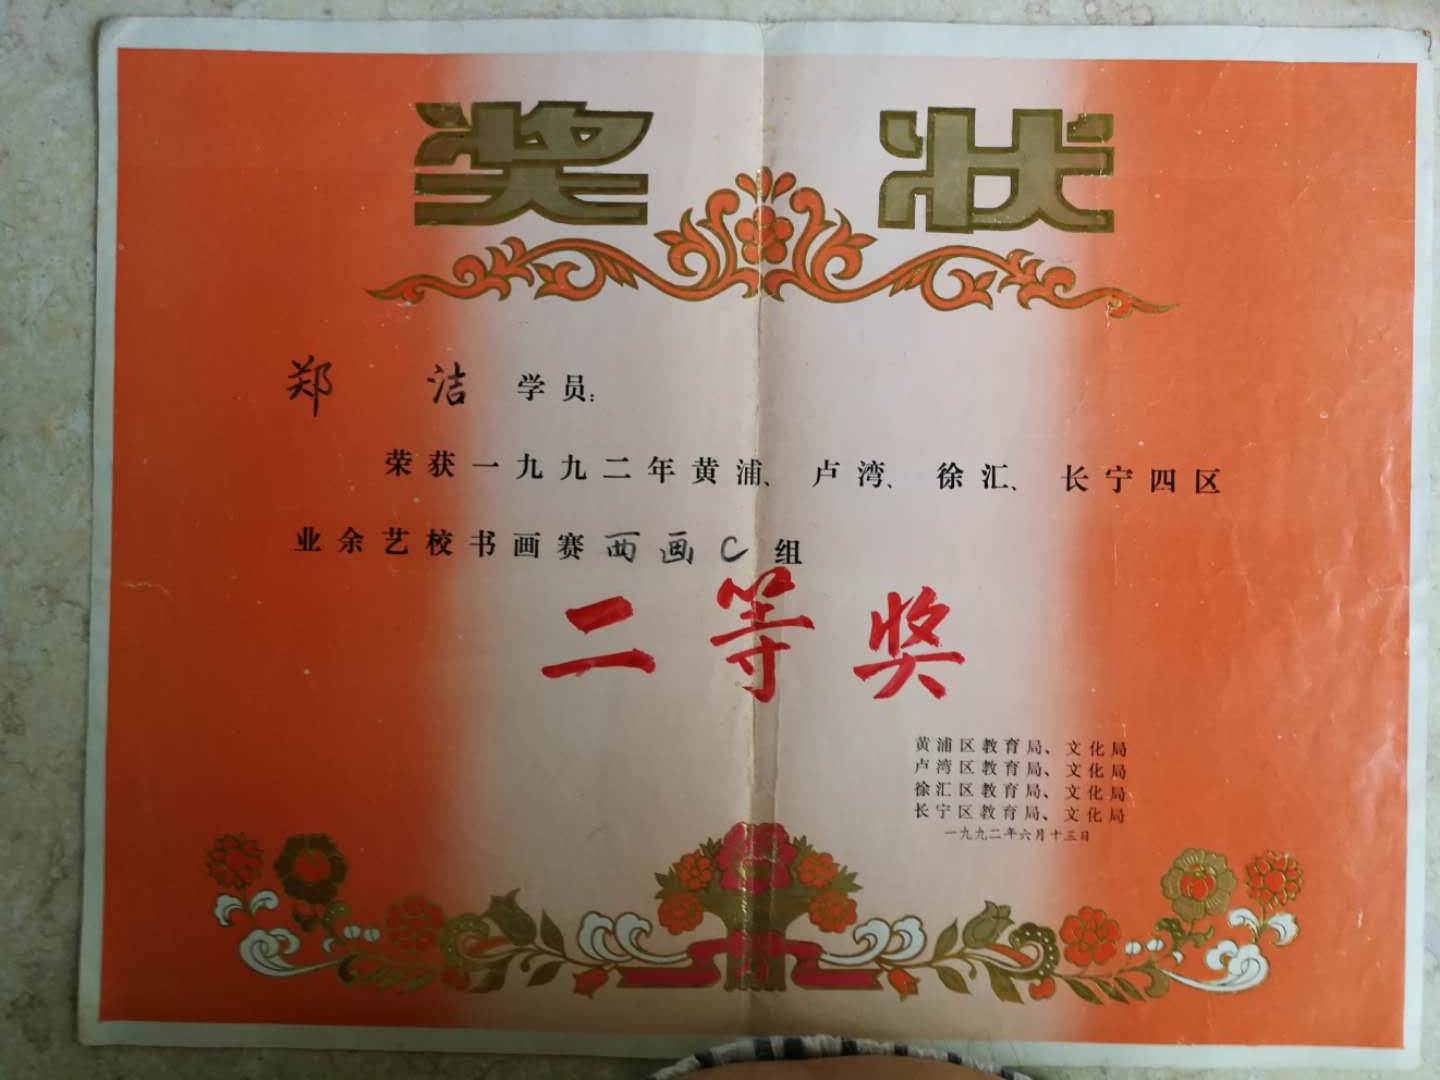 奖状
郑洁学员:
荣获一九九二年黄浦、卢湾、徐汇、长宁四区
业余艺校书画赛西画C组
二等奖
黄浦区教育局、文化局
卢湾区教育局、文化局
徐汇区教育局、文化局
长宁区教育局、文化局
一九九二年六月十三日